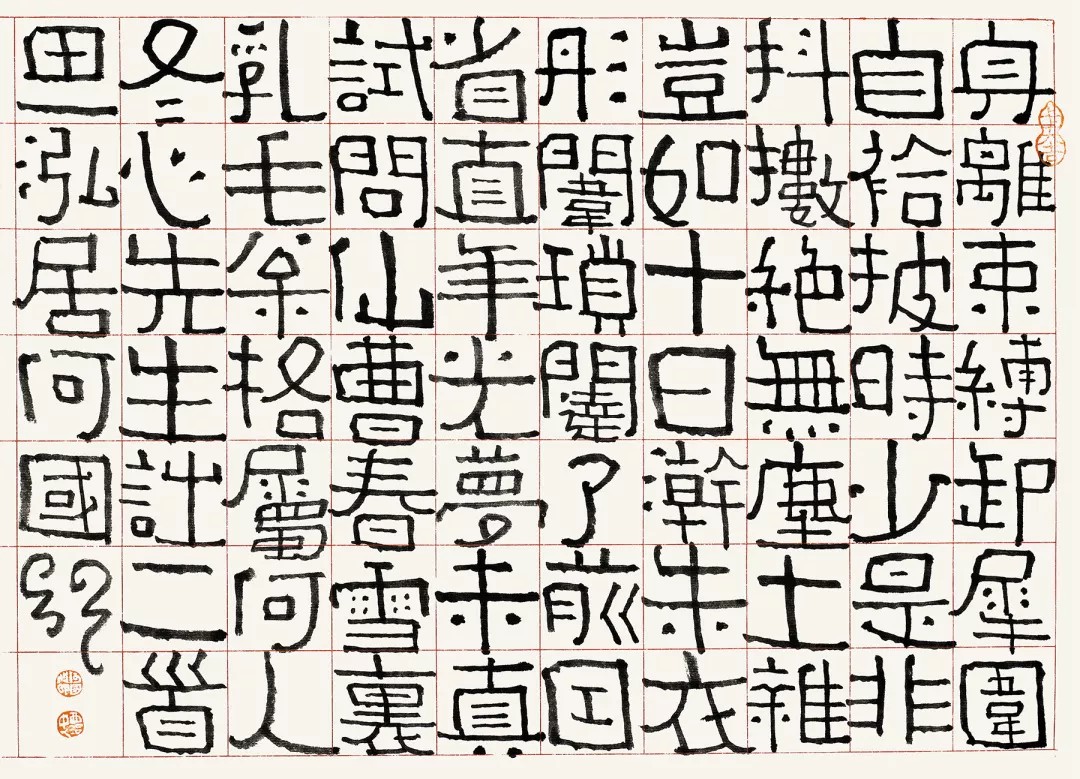 身離束縛卸犀圍
自袷披時少是非
抖擻絕無塵土雜
豈如十日澣朱衣
彤闈瑣闥了前因
省直年光夢未真
試問仙曹春雪裏
乳毛松格屬何人
冬心先生詩二首
泓居何國門